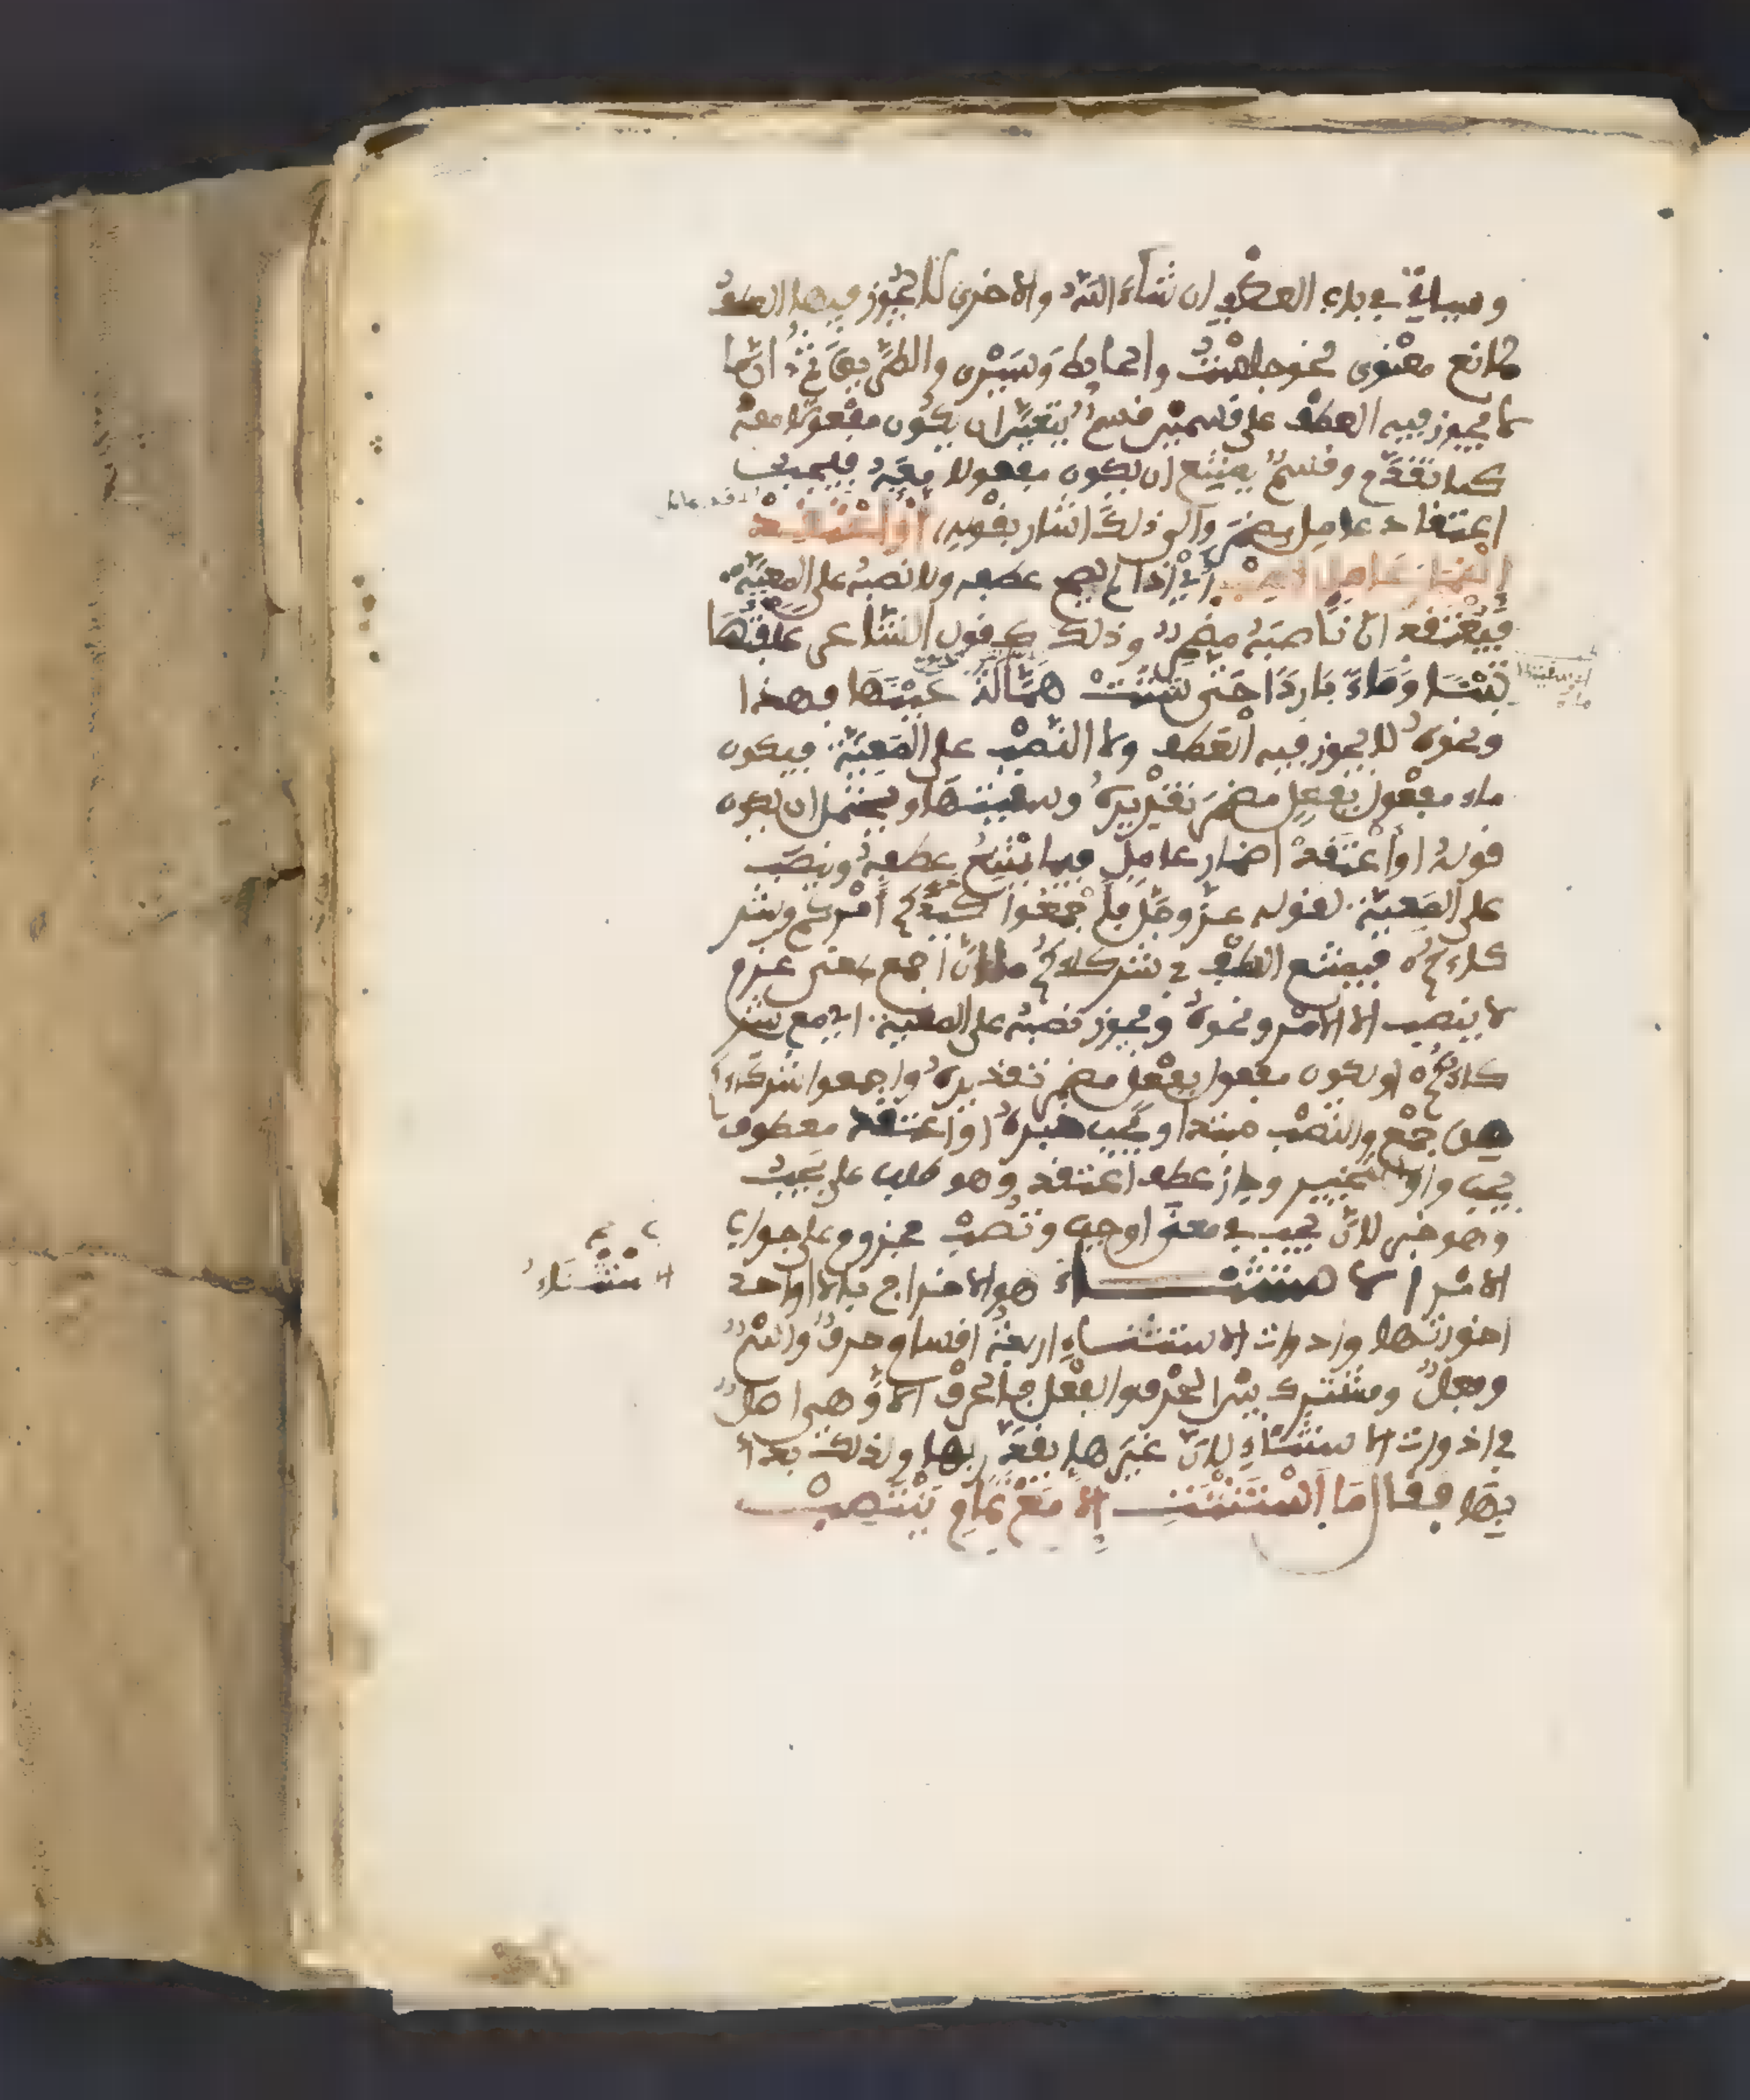 وسياتي في باب العطف ان شاء الله والاخرى لا يجوز فيها العطف
لمانع معنوى نحو جلست والحايط وسيرى والطريق
ما يجوز فيه العطف على قسمين قسم يتعين ان يكون مفعولا معه
كما تقدم وقسم يمتنع ان يكون مفعولا معه فيجب
اعتقاد عامل مضمر والى ذلك اشار بقوله او اعتقد
اضمار عامل تصب اي اذا لم يصح عطفه ولا نصبه على المعية
فيعتقد ان ناصبه مضمر وذلك كقول الشاعر علفتها
تبنا وماء باردا حتى شتت همالة عينها فهذا
ونحوه لا يجوز فيه العطف ولا النصب على المعية فيكون
ماء مفعول بفعل مضمر تقديره وسقيتها ويحتمل ان يكون
قوله او اعتقد اضمار عامل فيما يمتنع عطفه ونصب
على المعية لقوله عز وجل فاجمعوا كيدكم امركم وشر
كاءكم فيمتنع العطف في شركاءكم لان اجمع بمعنى عزم
لا ينصب الا الامر ونحوه ويجوز نصبه على المعية اي مع شر
كاءكم او يكون مفعول بفعل مضمر تقديره واجمعوا شركاء
من جمع والنصب مبتدا ويجب خبره او اعتقد معطوف
يجب واو للتخيير وجاز عطف اعتقد وهو طلب على يجب
وهو خبر لان يجب في معنى اوجب وتصب مجزوم على جواب
الامر الاستثناء هو الاخراج بالا او احد
اخواتها وادوات الاستثناء اربعة اقسام حرف واسم
وفعل ومشترك بين الحرف والفعل فالحرف الا وهي اصل
في ادوات الاستثناء لان غيرها يقدر بها ولذلك بدا
بها فقال ما استثنت الا مع تمام ينتصب
الاستثناء